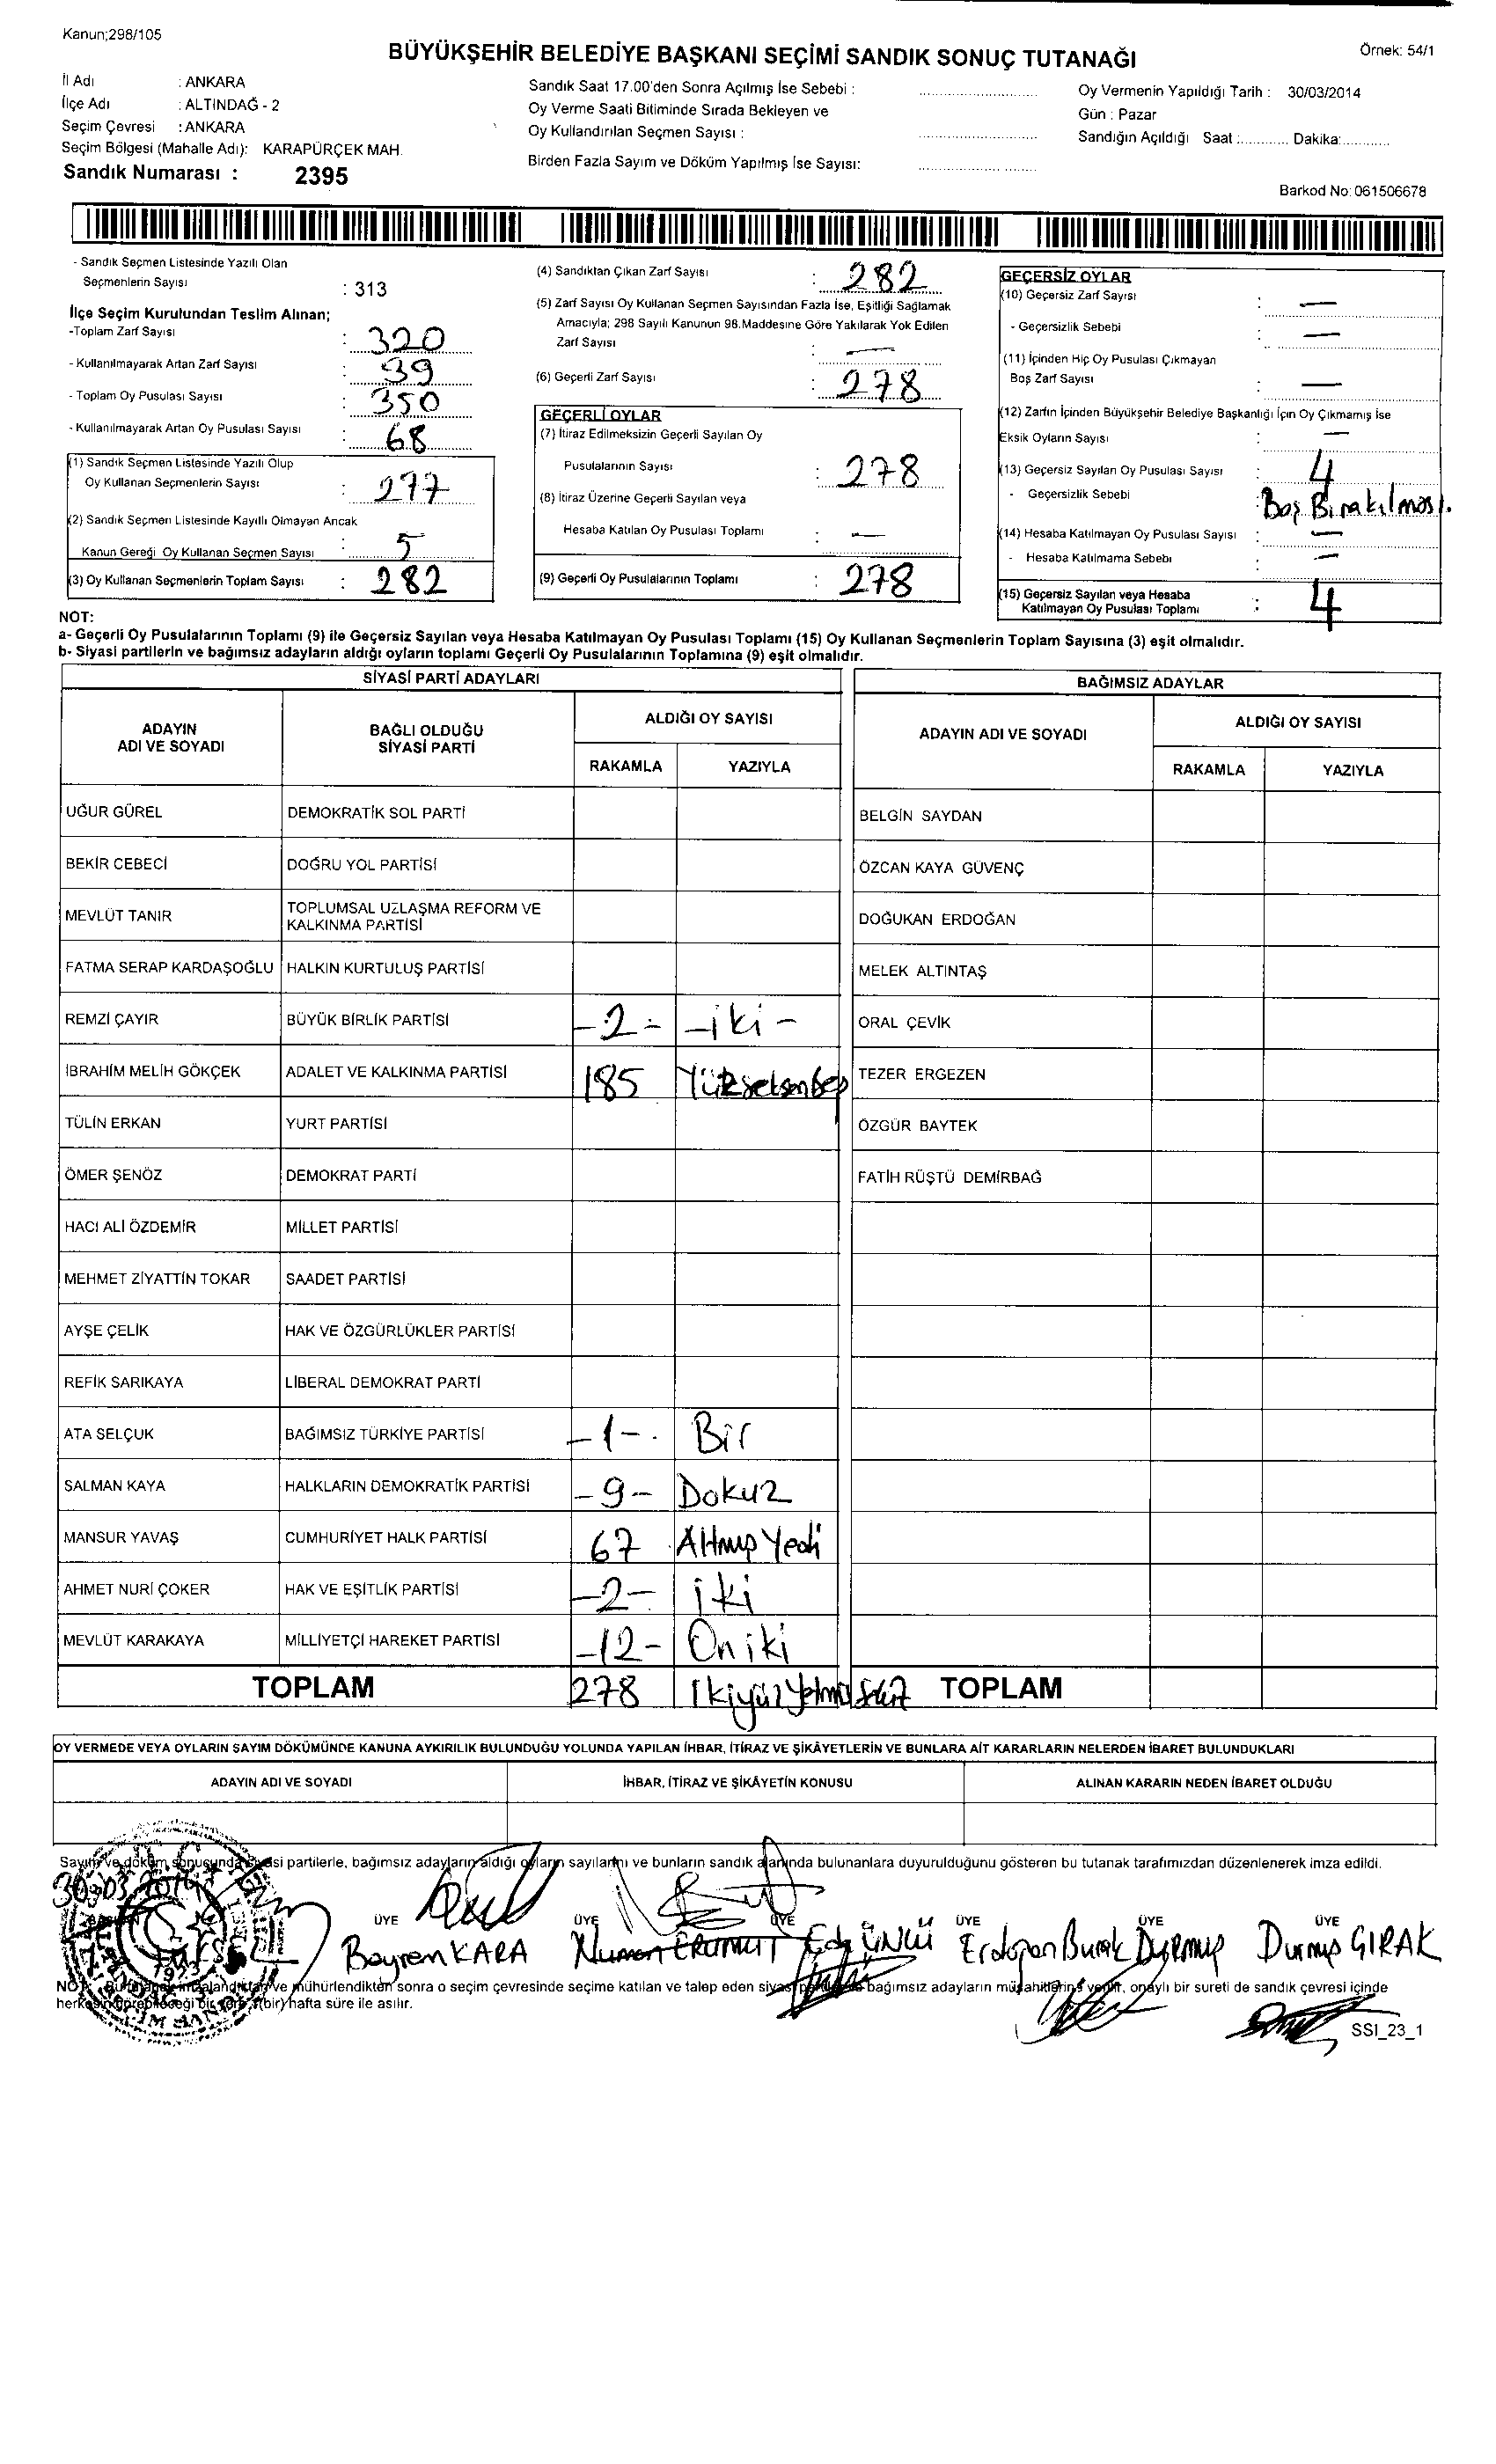 Kanun;298/105
BÜYÜKŞEHİR BELEDİYE BAŞKANI SEÇİMİ SANDIK SONUÇ TUTANAĞI
Örnek: 54/1
İl Adı : ANKARA
İlçe Adı : ALTINDAĞ - 2
Seçim Çevresi : ANKARA
Seçim Bölgesi (Mahalle Adı): KARAPÜRÇEK MAH.
Sandık Numarası : 2395
Sandık Saat 17.00'den Sonra Açılmış İse Sebebi :
Oy Verme Saati Bitiminde Sırada Bekleyen ve
Oy Kullandırılan Seçmen Sayısı :
Birden Fazla Sayım ve Döküm Yapılmış İse Sayısı:
Oy Vermenin Yapıldığı Tarih : 30/03/2014
Gün : Pazar
Sandığın Açıldığı Saat :............ Dakika:............
Barkod No:061506678
- Sandık Seçmen Listesinde Yazılı Olan
Seçmenlerin Sayısı : 313
İlçe Seçim Kurulundan Teslim Alınan;
-Toplam Zarf Sayısı : 320
- Kullanılmayarak Artan Zarf Sayısı : 39
- Toplam Oy Pusulası Sayısı : 350
- Kullanılmayarak Artan Oy Pusulası Sayısı : 68
(1) Sandık Seçmen Listesinde Yazılı Olup
Oy Kullanan Seçmenlerin Sayısı : 277
(2) Sandık Seçmen Listesinde Kayıtlı Olmayan Ancak
Kanun Gereği Oy Kullanan Seçmen Sayısı : 5
(3) Oy Kullanan Seçmenlerin Toplam Sayısı : 282
(4) Sandıktan Çıkan Zarf Sayısı : 282
(5) Zarf Sayısı Oy Kullanan Seçmen Sayısından Fazla İse, Eşitliği Sağlamak
Amacıyla; 298 Sayılı Kanunun 98.Maddesine Göre Yakılarak Yok Edilen
Zarf Sayısı : —
(6) Geçerli Zarf Sayısı : 278
GEÇERLİ OYLAR
(7) İtiraz Edilmeksizin Geçerli Sayılan Oy
Pusulalarının Sayısı : 278
(8) İtiraz Üzerine Geçerli Sayılan veya
Hesaba Katılan Oy Pusulası Toplamı : —
(9) Geçerli Oy Pusulalarının Toplamı : 278
GEÇERSİZ OYLAR
(10) Geçersiz Zarf Sayısı : —
- Geçersizlik Sebebi : —
(11) İçinden Hiç Oy Pusulası Çıkmayan
Boş Zarf Sayısı : —
(12) Zarfın İçinden Büyükşehir Belediye Başkanlığı İçin Oy Çıkmamış İse
Eksik Oyların Sayısı : —
(13) Geçersiz Sayılan Oy Pusulası Sayısı : 4
- Geçersizlik Sebebi : Boş Bırakılması.
(14) Hesaba Katılmayan Oy Pusulası Sayısı : —
- Hesaba Katılmama Sebebi : —
(15) Geçersiz Sayılan veya Hesaba
Katılmayan Oy Pusulası Toplamı : 4
NOT:
a- Geçerli Oy Pusulalarının Toplamı (9) ile Geçersiz Sayılan veya Hesaba Katılmayan Oy Pusulası Toplamı (15) Oy Kullanan Seçmenlerin Toplam Sayısına (3) eşit olmalıdır.
b- Siyasi partilerin ve bağımsız adayların aldığı oyların toplamı Geçerli Oy Pusulalarının Toplamına (9) eşit olmalıdır.
SİYASİ PARTİ ADAYLARI
ADAYIN ADI VE SOYADI
BAĞLI OLDUĞU SİYASİ PARTİ
ALDIĞI OY SAYISI
RAKAMLA YAZIYLA
UĞUR GÜREL DEMOKRATİK SOL PARTİ
BEKİR CEBECİ DOĞRU YOL PARTİSİ
MEVLÜT TANIR TOPLUMSAL UZLAŞMA REFORM VE
KALKINMA PARTİSİ
FATMA SERAP KARDAŞOĞLU HALKIN KURTULUŞ PARTİSİ
REMZİ ÇAYIR BÜYÜK BİRLİK PARTİSİ -2- -iki-
İBRAHİM MELİH GÖKÇEK ADALET VE KALKINMA PARTİSİ 185 Yükseksenbeş
TÜLİN ERKAN YURT PARTİSİ
ÖMER ŞENÖZ DEMOKRAT PARTİ
HACI ALİ ÖZDEMİR MİLLET PARTİSİ
MEHMET ZİYATTİN TOKAR SAADET PARTİSİ
AYŞE ÇELİK HAK VE ÖZGÜRLÜKLER PARTİSİ
REFİK SARIKAYA LİBERAL DEMOKRAT PARTİ
ATA SELÇUK BAĞIMSIZ TÜRKİYE PARTİSİ -1-. Bir
SALMAN KAYA HALKLARIN DEMOKRATİK PARTİSİ -9- Dokuz
MANSUR YAVAŞ CUMHURİYET HALK PARTİSİ 67 Altmış Yedi
AHMET NURİ ÇOKER HAK VE EŞİTLİK PARTİSİ -2- iki
MEVLÜT KARAKAYA MİLLİYETÇİ HAREKET PARTİSİ -12- On iki
TOPLAM 278
BAĞIMSIZ ADAYLAR
ADAYIN ADI VE SOYADI
ALDIĞI OY SAYISI
RAKAMLA YAZIYLA
BELGİN SAYDAN
ÖZCAN KAYA GÜVENÇ
DOĞUKAN ERDOĞAN
MELEK ALTINTAŞ
ORAL ÇEVİK
TEZER ERGEZEN
ÖZGÜR BAYTEK
FATİH RÜŞTÜ DEMİRBAĞ
TOPLAM
OY VERMEDE VEYA OYLARIN SAYIM DÖKÜMÜNDE KANUNA AYKIRILIK BULUNDUĞU YOLUNDA YAPILAN İHBAR, İTİRAZ VE ŞİKÂYETLERİN VE BUNLARA AİT KARARLARIN NELERDEN İBARET BULUNDUKLARI
ADAYIN ADI VE SOYADI İHBAR, İTİRAZ VE ŞİKÂYETİN KONUSU ALINAN KARARIN NEDEN İBARET OLDUĞU
Sayım ve döküm sonucunda siyasi partilerle, bağımsız adayların aldığı oyların sayılarını ve bunların sandık alanında bulunanlara duyurulduğunu gösteren bu tutanak tarafımızdan düzenlenerek imza edildi.
30.03.2014
ÜYE ÜYE ÜYE ÜYE ÜYE ÜYE
Bayram KARA Numan Eda ÜNLÜ Erdoğan Burak Durmuş GIRAK
ve mühürlendikten sonra o seçim çevresinde seçime katılan ve talep eden bağımsız adayların müşahitlerine verilir, onaylı bir sureti de sandık çevresi içinde
hafta süre ile asılır.
SSI_23_1